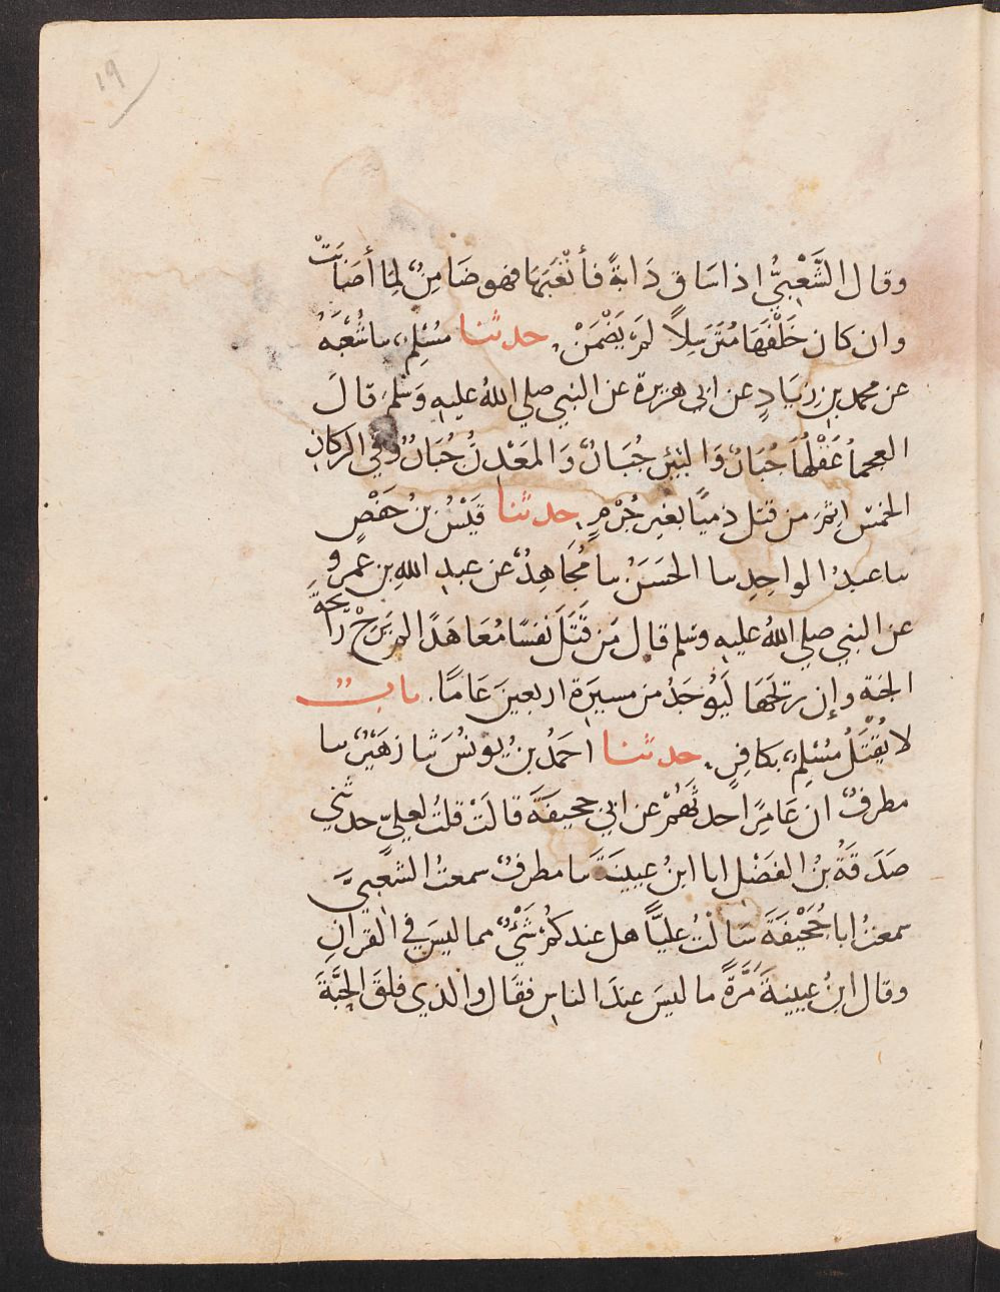 ١٩
وقال الشَّعْبِيُّ اذا سَاقَ دَابةً فأتْعَبَهَا فهو ضَامِنٌ لِمَا أصَابَتْ
وان كان خَلْفَهَا مُتَرَسِلاً لَمْ يَضْمَنْ حدثنا مُسْلِمٌ سا شُعْبَةُ
عن محمد بنِ زِيَادٍ عن ابى هريرة عن النبي صلي اللهُ عليهِ وَسَلمَ قالَ
العجماُ عَقْلُهَا جُبَارٌ وَالبِئْرُ جُبَارٌ وَالمَعْدِنُ جُبَارٌ وفي الركازِ
الخمسُ اِثْمِ من قتل ذميًا بغيرِ جُرْمٍ حدثنا قَيْسُ بنُ حَفْصٍ
سا عبدُ الواحِدِ سا الحَسَنُ سا مُجَاهِدٌ عن عبدِ اللهِ بنِ عمرٍو
عن النبي صلي اللهُ عليهِ وسلم قال مَن قَتَلَ نَفسًا مُعَاهَدًا لم يَرَحْ رَائِحَةَ
الجنة وإن رِيحَهَا لَيُوْجَدُ من مسيرَةِ اربعينَ عَامًا. باب
لا يُقْتَلُ مُسْلِمٌ بكافِرٍ. حدثنا احمَدُ بنُ يونُسَ ثنا زهَيْرٌ سا
مطرفٌ ان عَامِرًا حدثَهُمْ عن ابي جحيفَةَ قالَتْ قلتُ لعليٍّ حدثني
صَدَقَةُ بنُ الفَضْلِ ابا ابنُ عيينَةَ سا مطرفٌ سمعتُ الشَّعْبِيَّ
سمعتُ ابا جُحَيْفَةَ سَالْتُ عليَّاً هل عندكُمْ شَيْءٌ مما ليسَ في القرآنِ
وقال ابنُ عيينةَ مَرَّةً ما ليسَ عندَ الناسِ فقَال والذي فلقَ الحَبَّةَ